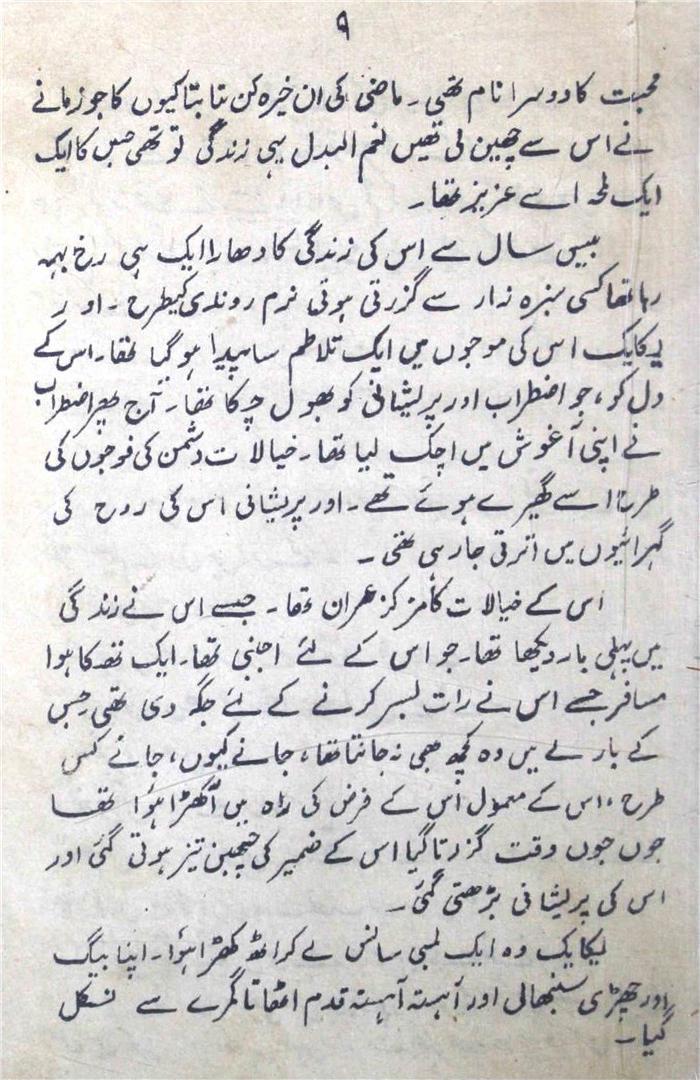 ۹
محبت کا دوسرا نام تھی ۔ ماضی کی ان خیرہ کن بتا بتا کیوں کا جو زمانے
نے اس سے چھین لی تھیں نعم البدل یہی زندگی تو تھی جس کا ایک
ایک لمحہ اسے عزیز تھا ۔
بیس سال سے اس کی زندگی کا دھارا ایک ہی رخ بہہ
رہا تھا کسی سبزہ زار سے گزرتی ہوئی نرم رو ندی کیطرح ۔ اور
یکایک اس کی موجوں میں ایک تلاطم سا پیدا ہو گیا تھا ۔ اس کے
دل کو ، جو اضطراب اور پریشانی کو بھول چکا تھا ۔ آج پھر اضطراب
نے اپنی آغوش میں اچک لیا تھا ۔ خیالات دشمن کی فوجوں کی
طرح اسے گھیرے ہوئے تھے ۔ اور پریشانی اس کی روح کی
گہرائیوں میں اترتی جا رہی تھی ۔
اس کے خیالات کا مرکز عمران تھا ۔ جسے اس نے زندگی
میں پہلی بار دیکھا تھا ۔ جو اس کے لئے اجنبی تھا ۔ ایک تھکا ہوا
مسافر جسے اس نے رات بسر کرنے کے لئے جگہ دی تھی جس
کے بارے میں وہ کچھ بھی نہ جانتا تھا ، جانے کیوں ، جانے کس
طرح ، اس کے معمول اس کے فرض کی راہ میں آکھڑا ہوا تھا
جوں جوں وقت گزرتا گیا اس کے ضمیر کی چبھن تیز ہوتی گئی اور
اس کی پریشانی بڑھتی گئی ۔
یکایک وہ ایک لمبی سانس لے کر اٹھ کھڑا ہوا ۔ اپنا بیگ
اور چھڑی سنبھالی اور آہستہ آہستہ قدم اٹھاتا کمرے سے نکل
گیا ۔